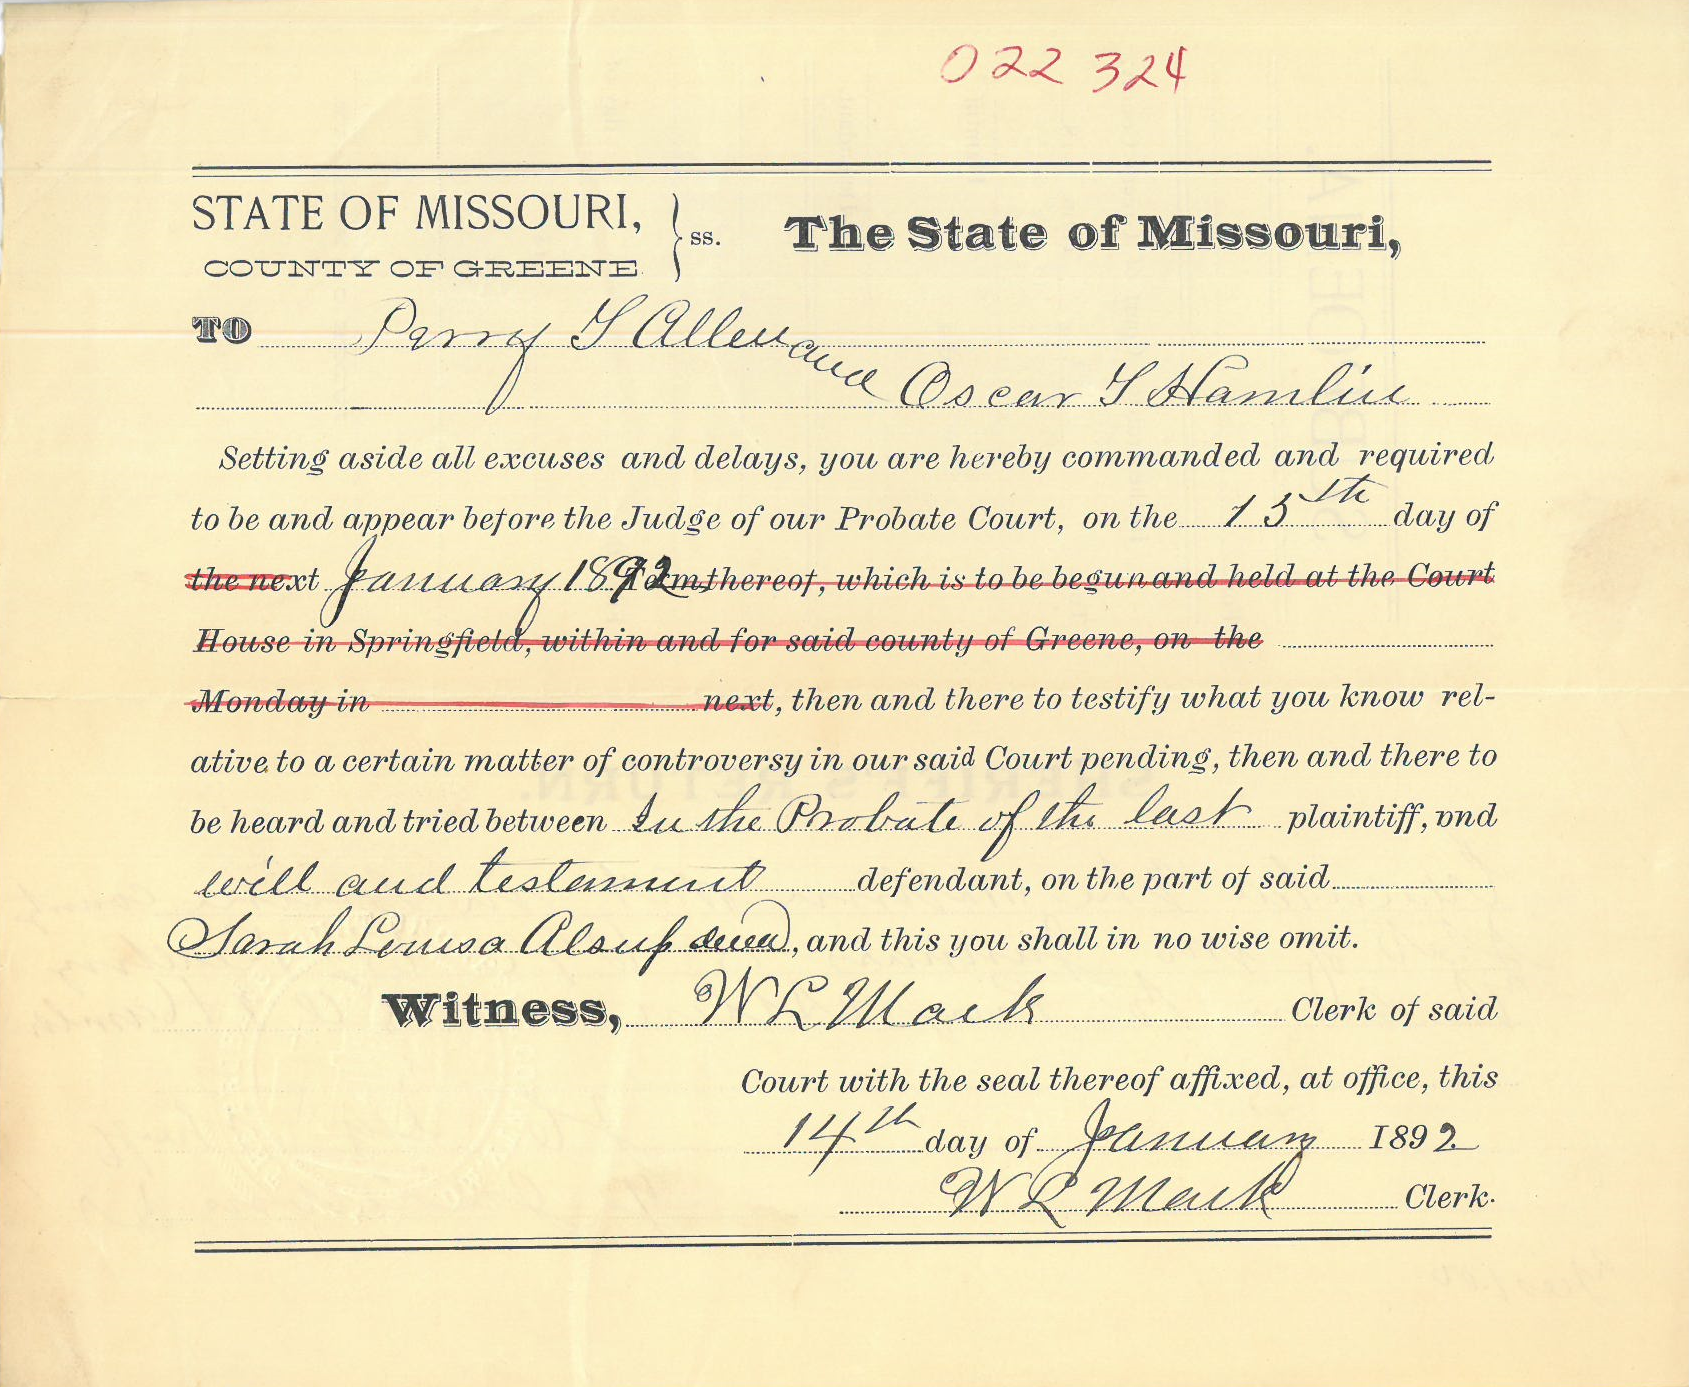 022 324
STATE OF MISSOURI,
COUNTY OF GREENE
ss.
The State of Missouri,
TO Perry T Allen and
Oscar T Hamlin
Setting aside all excuses and delays, you are hereby commanded and required
to be and appear before the Judge of our Probate Court, on the 15th day of
the next January 1892 Term thereof, which is to be begun and held at the Court
House in Springfield, within and for said county of Greene, on the
Monday in next, then and there to testify what you know rel-
ative to a certain matter of controversy in our said Court pending, then and there to
be heard and tried between In the Probate of the last plaintiff, vnd
will and testament defendant, on the part of said
Sarah Louisa Alsup , and this you shall in no wise omit.
Witness, W L Mack Clerk of said
Court with the seal thereof affixed, at office, this
14th day of January 1892
W L Mack Clerk.